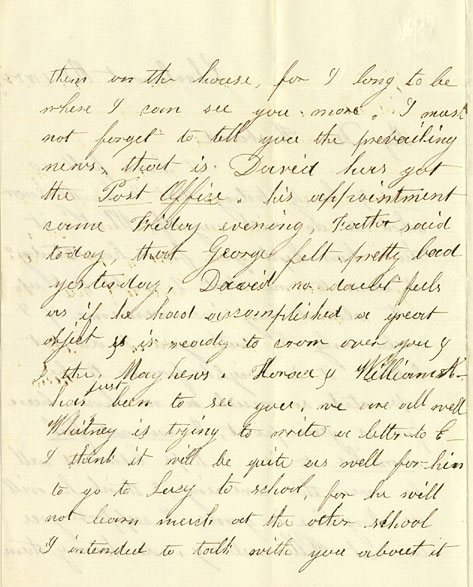 them on the house, for I long to be
where I can see you more. I must
not forget to tell you the prevailing
news, that is David has got
the Post Office. his appointment
came Friday evening, Father said
today, that George felt pretty bad
yesterday, David no doubt feels
as if he had accomplished a great
object & is ready to crow over you &
& the Mayhews. Horace & William
just
has been to see you, we are all well
Whitney is trying to write a letter to E-
I think it will be quite as well for him
to go to Lucy to school, for he will
not learn much at the other school
I intended to talk with you about it